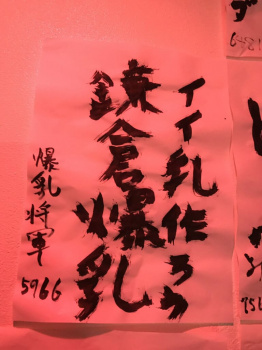 イイ乳作ろう
鎌倉爆乳
爆乳将軍
5966